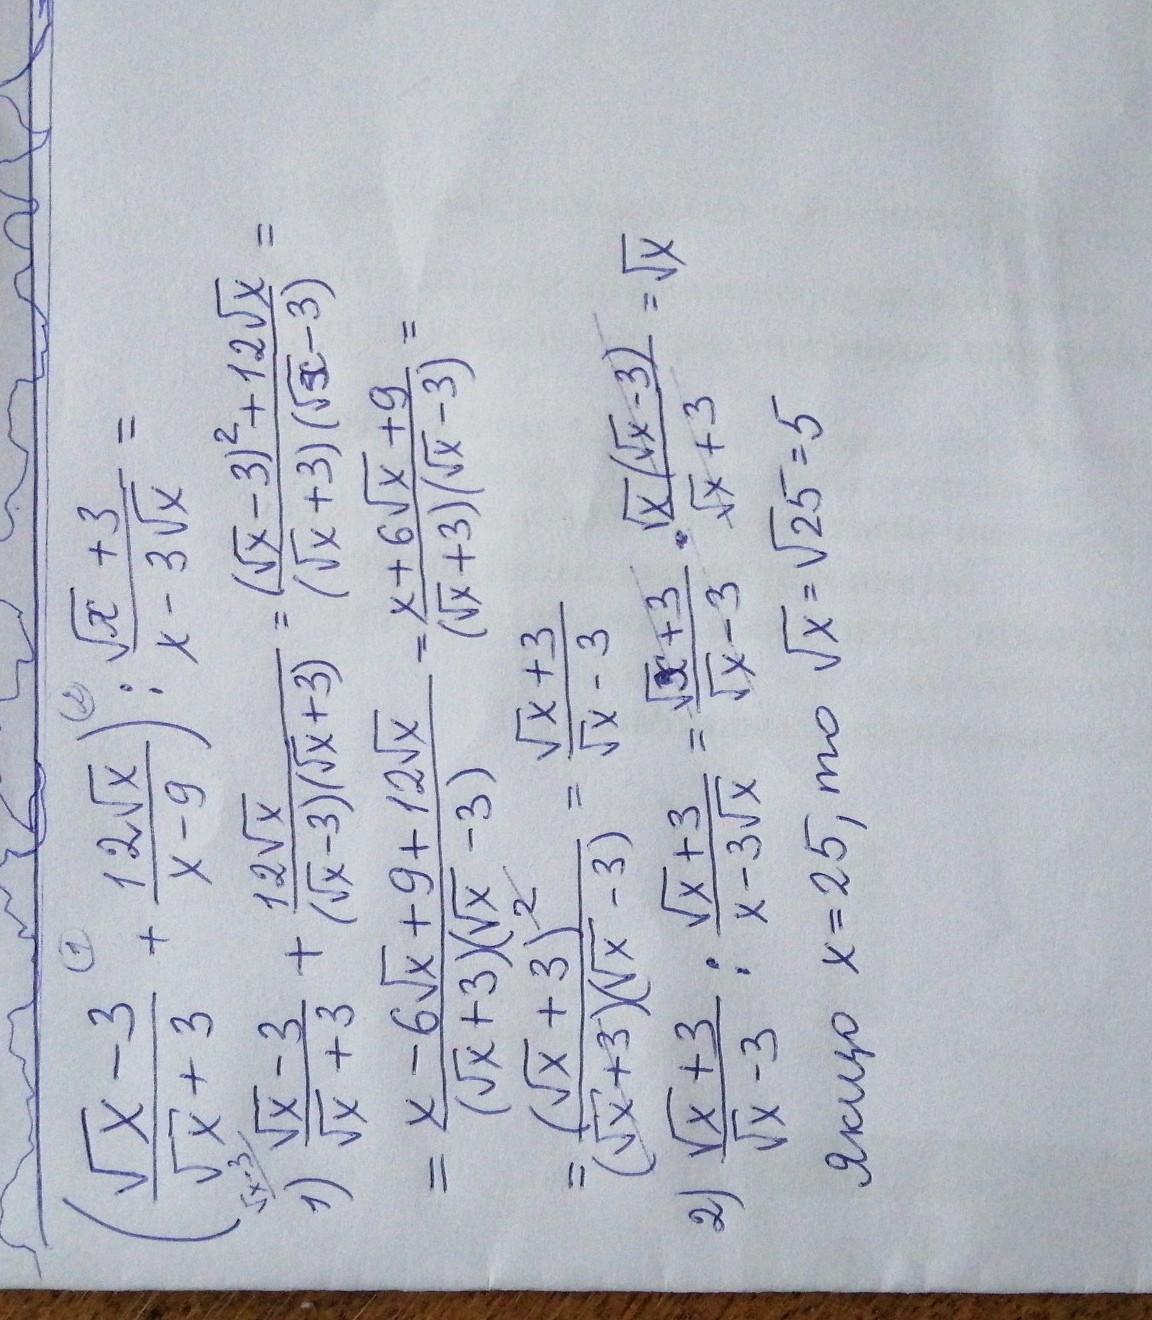 ((√x - 3)/(√x + 3) ① + (12√x)/(x - 9)) ② : (√x + 3)/(x - 3√x) =
1) √x-3/ (√x - 3)/(√x + 3) + (12√x)/((√x - 3)(√x + 3)) = ((√x - 3)² + 12√x)/((√x + 3)(√x - 3)) =
= (x - 6√x + 9 + 12√x)/((√x + 3)(√x - 3)) = (x + 6√x + 9)/((√x + 3)(√x - 3)) =
= (√x + 3)²/((√x + 3)(√x - 3)) = (√x + 3)/(√x - 3)
2) (√x + 3)/(√x - 3) : (√x + 3)/(x - 3√x) = (√x + 3)/(√x - 3) · (√x(√x - 3))/(√x + 3) = √x
Якщо x = 25, то √x = √25 = 5